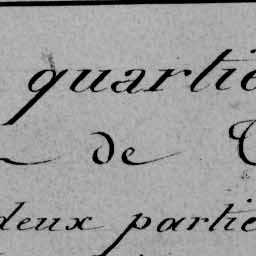 quartie
de
deux partie